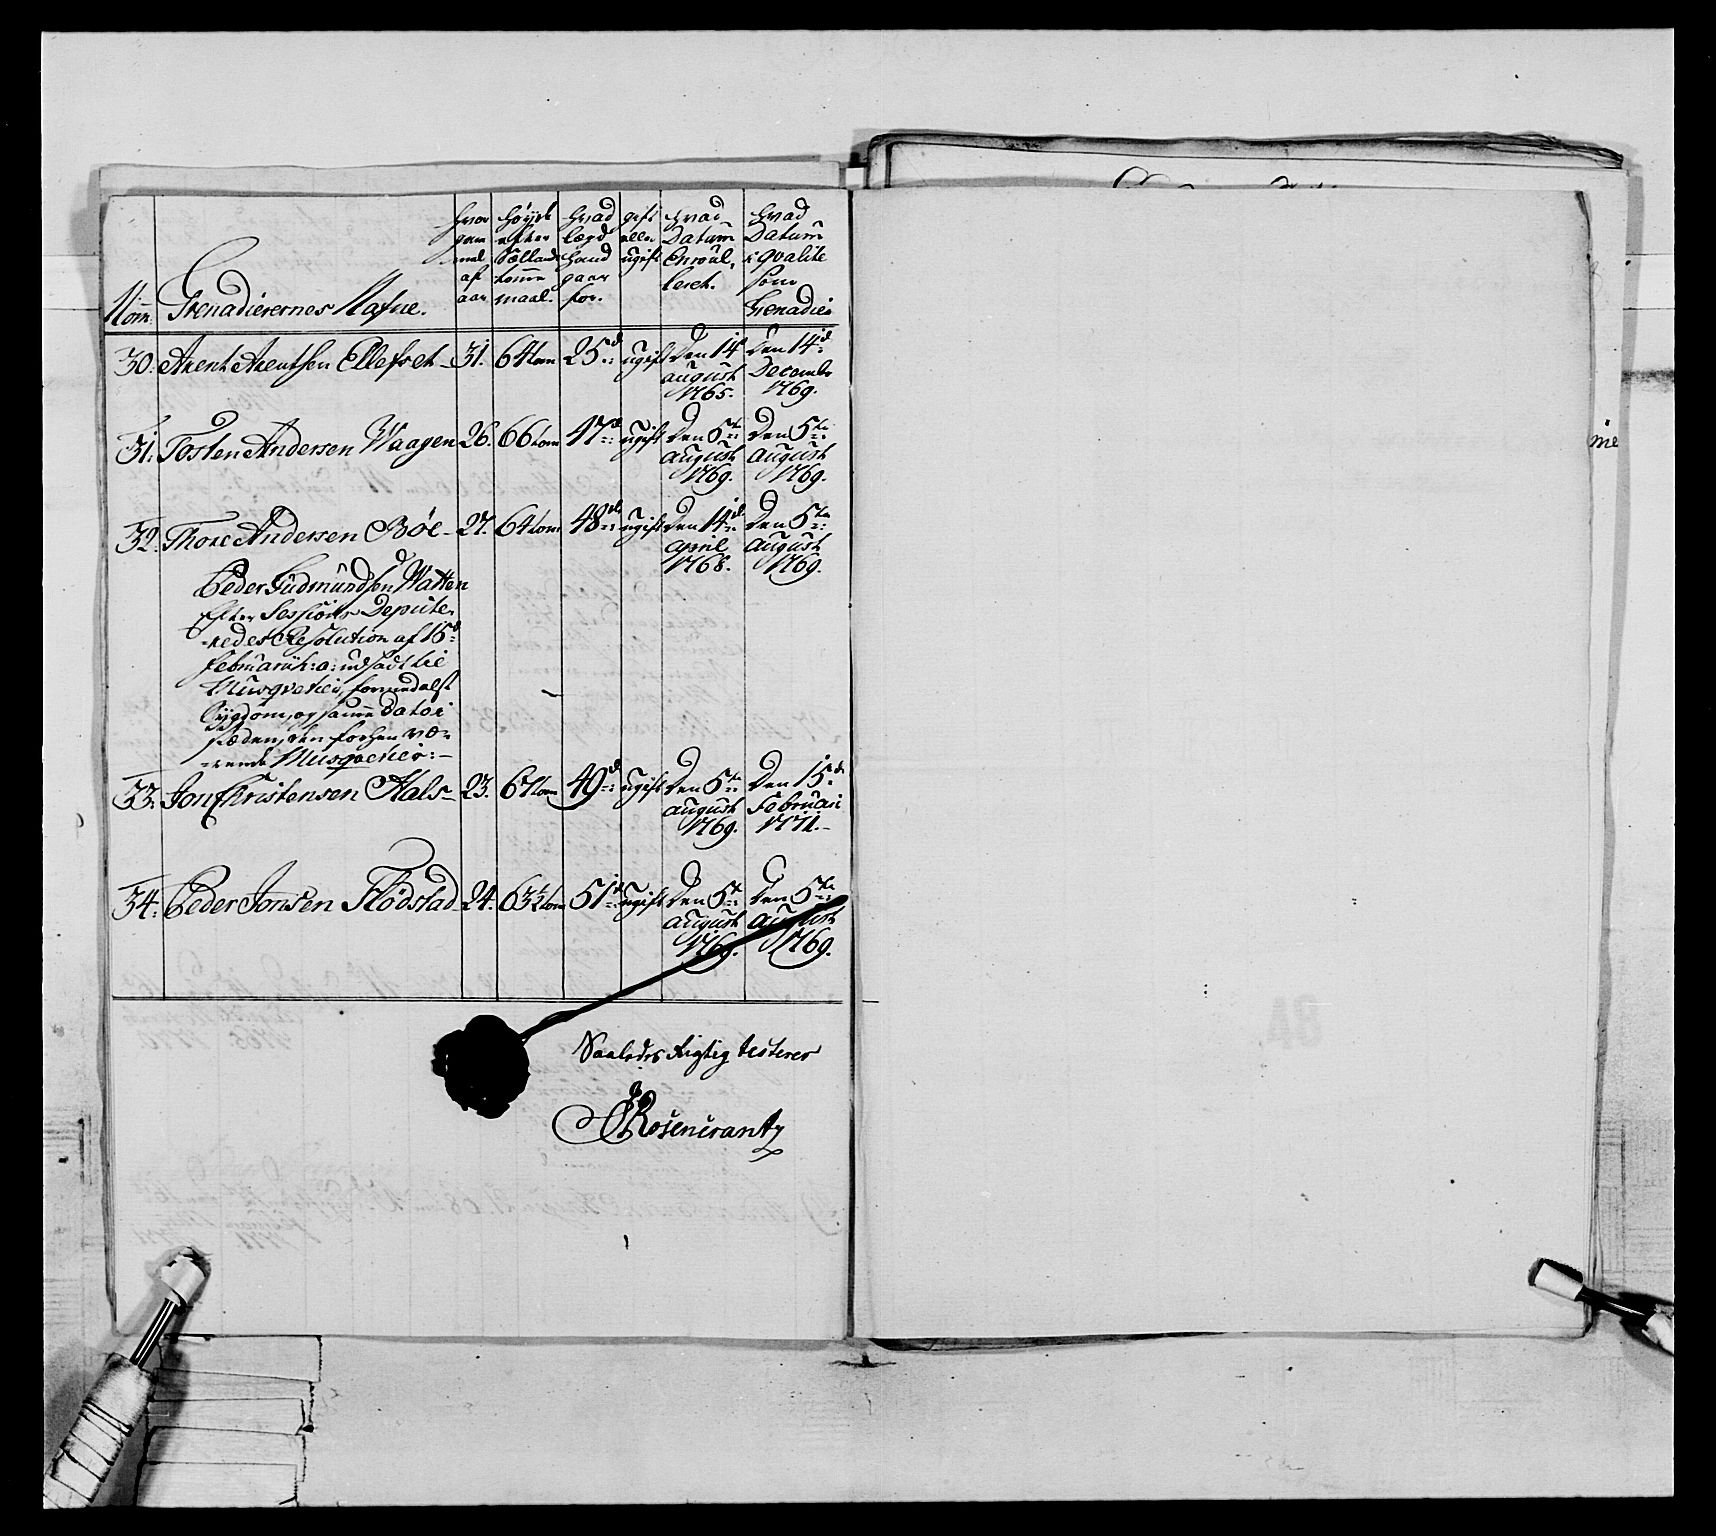 Nom. Grenadierernes Nafne. hvor gammel af aar Høyde efter Sællands tomme maal. hvad lægd hand gaar for. gift eller ugift hvad Datum Enroulleret. hvad Datum i qvalite som Grenadier
30. Arent Arentsen Ellefset 31. 64 tom 25d ugift Den 14d august 1765. Den 14d Decembr 1769.
31. Tosten Andersen Waagen 26. 66 tom 47d ugift Den 5te august 1769. Den 5te august 1769.
32. Thore Andersen Böe 27. 64 tom 48d ugift Den 14d april 1768. Den 5te august 1769.
Peder Gudmundsen Watten
Efter Sessions Depute-
redes Resolution af 15d
Februarii h: a: udsadt til
Musqveteir, formedelst
Sygdom, og samme dato i
stæden, den forhen væ-
rende Musqveteir:
33. Jon Christensen Hals 23. 67 tom 49d ugift Den 5te august 1769. Den 15de Februari 1771.
34. Peder Jonsen Flödstad 24. 63½ tom 51d ugift Den 5te august 1769. Den 5te august 1769.
Saaledes Rigtig testerer
Rosencrantz
me